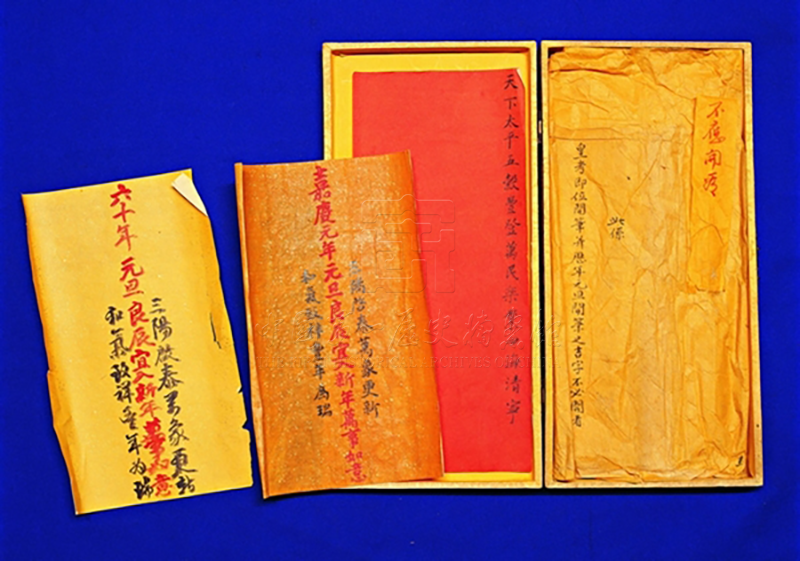 不應開看
此係
皇考即位開筆并歷年元旦開筆之吉字不必開看
天下太平五穀豐登萬民樂業四海清寧
三陽啓泰萬象更新
嘉慶元年元旦良辰宜入新年萬事如意
和氣致祥豐年為瑞
三陽啟泰萬象更新
六十年元旦良辰宜入新年萬事如意
和氣致祥豐年為瑞